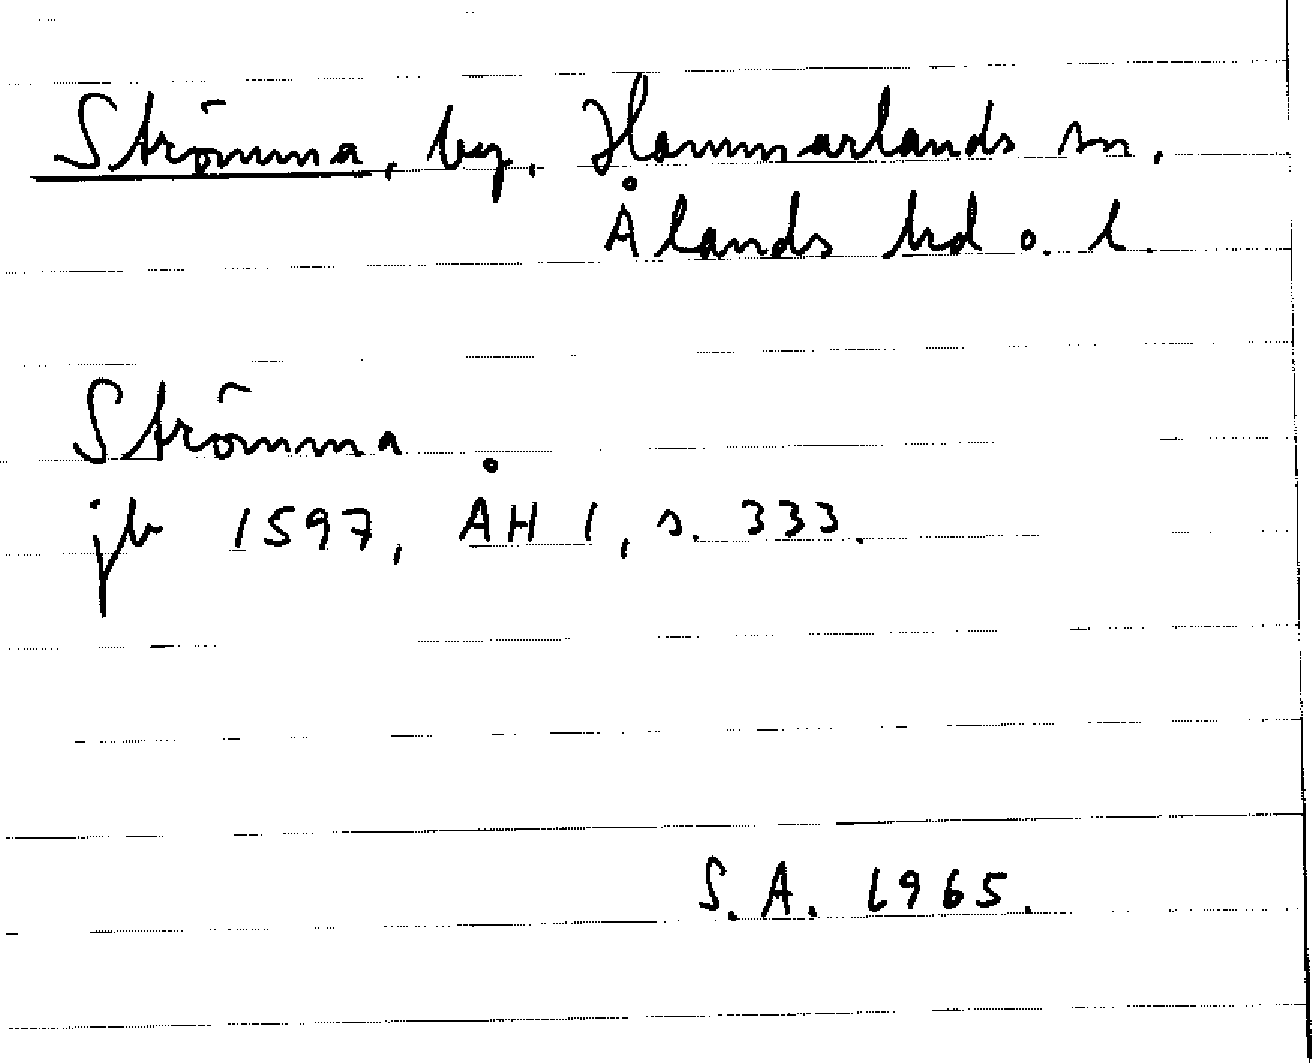 Strömma, by, Hammarlands sn,
Ålands hd o. l.
Strömma
jb 1597, ÅH 1, s. 333.
S.A. 1965.